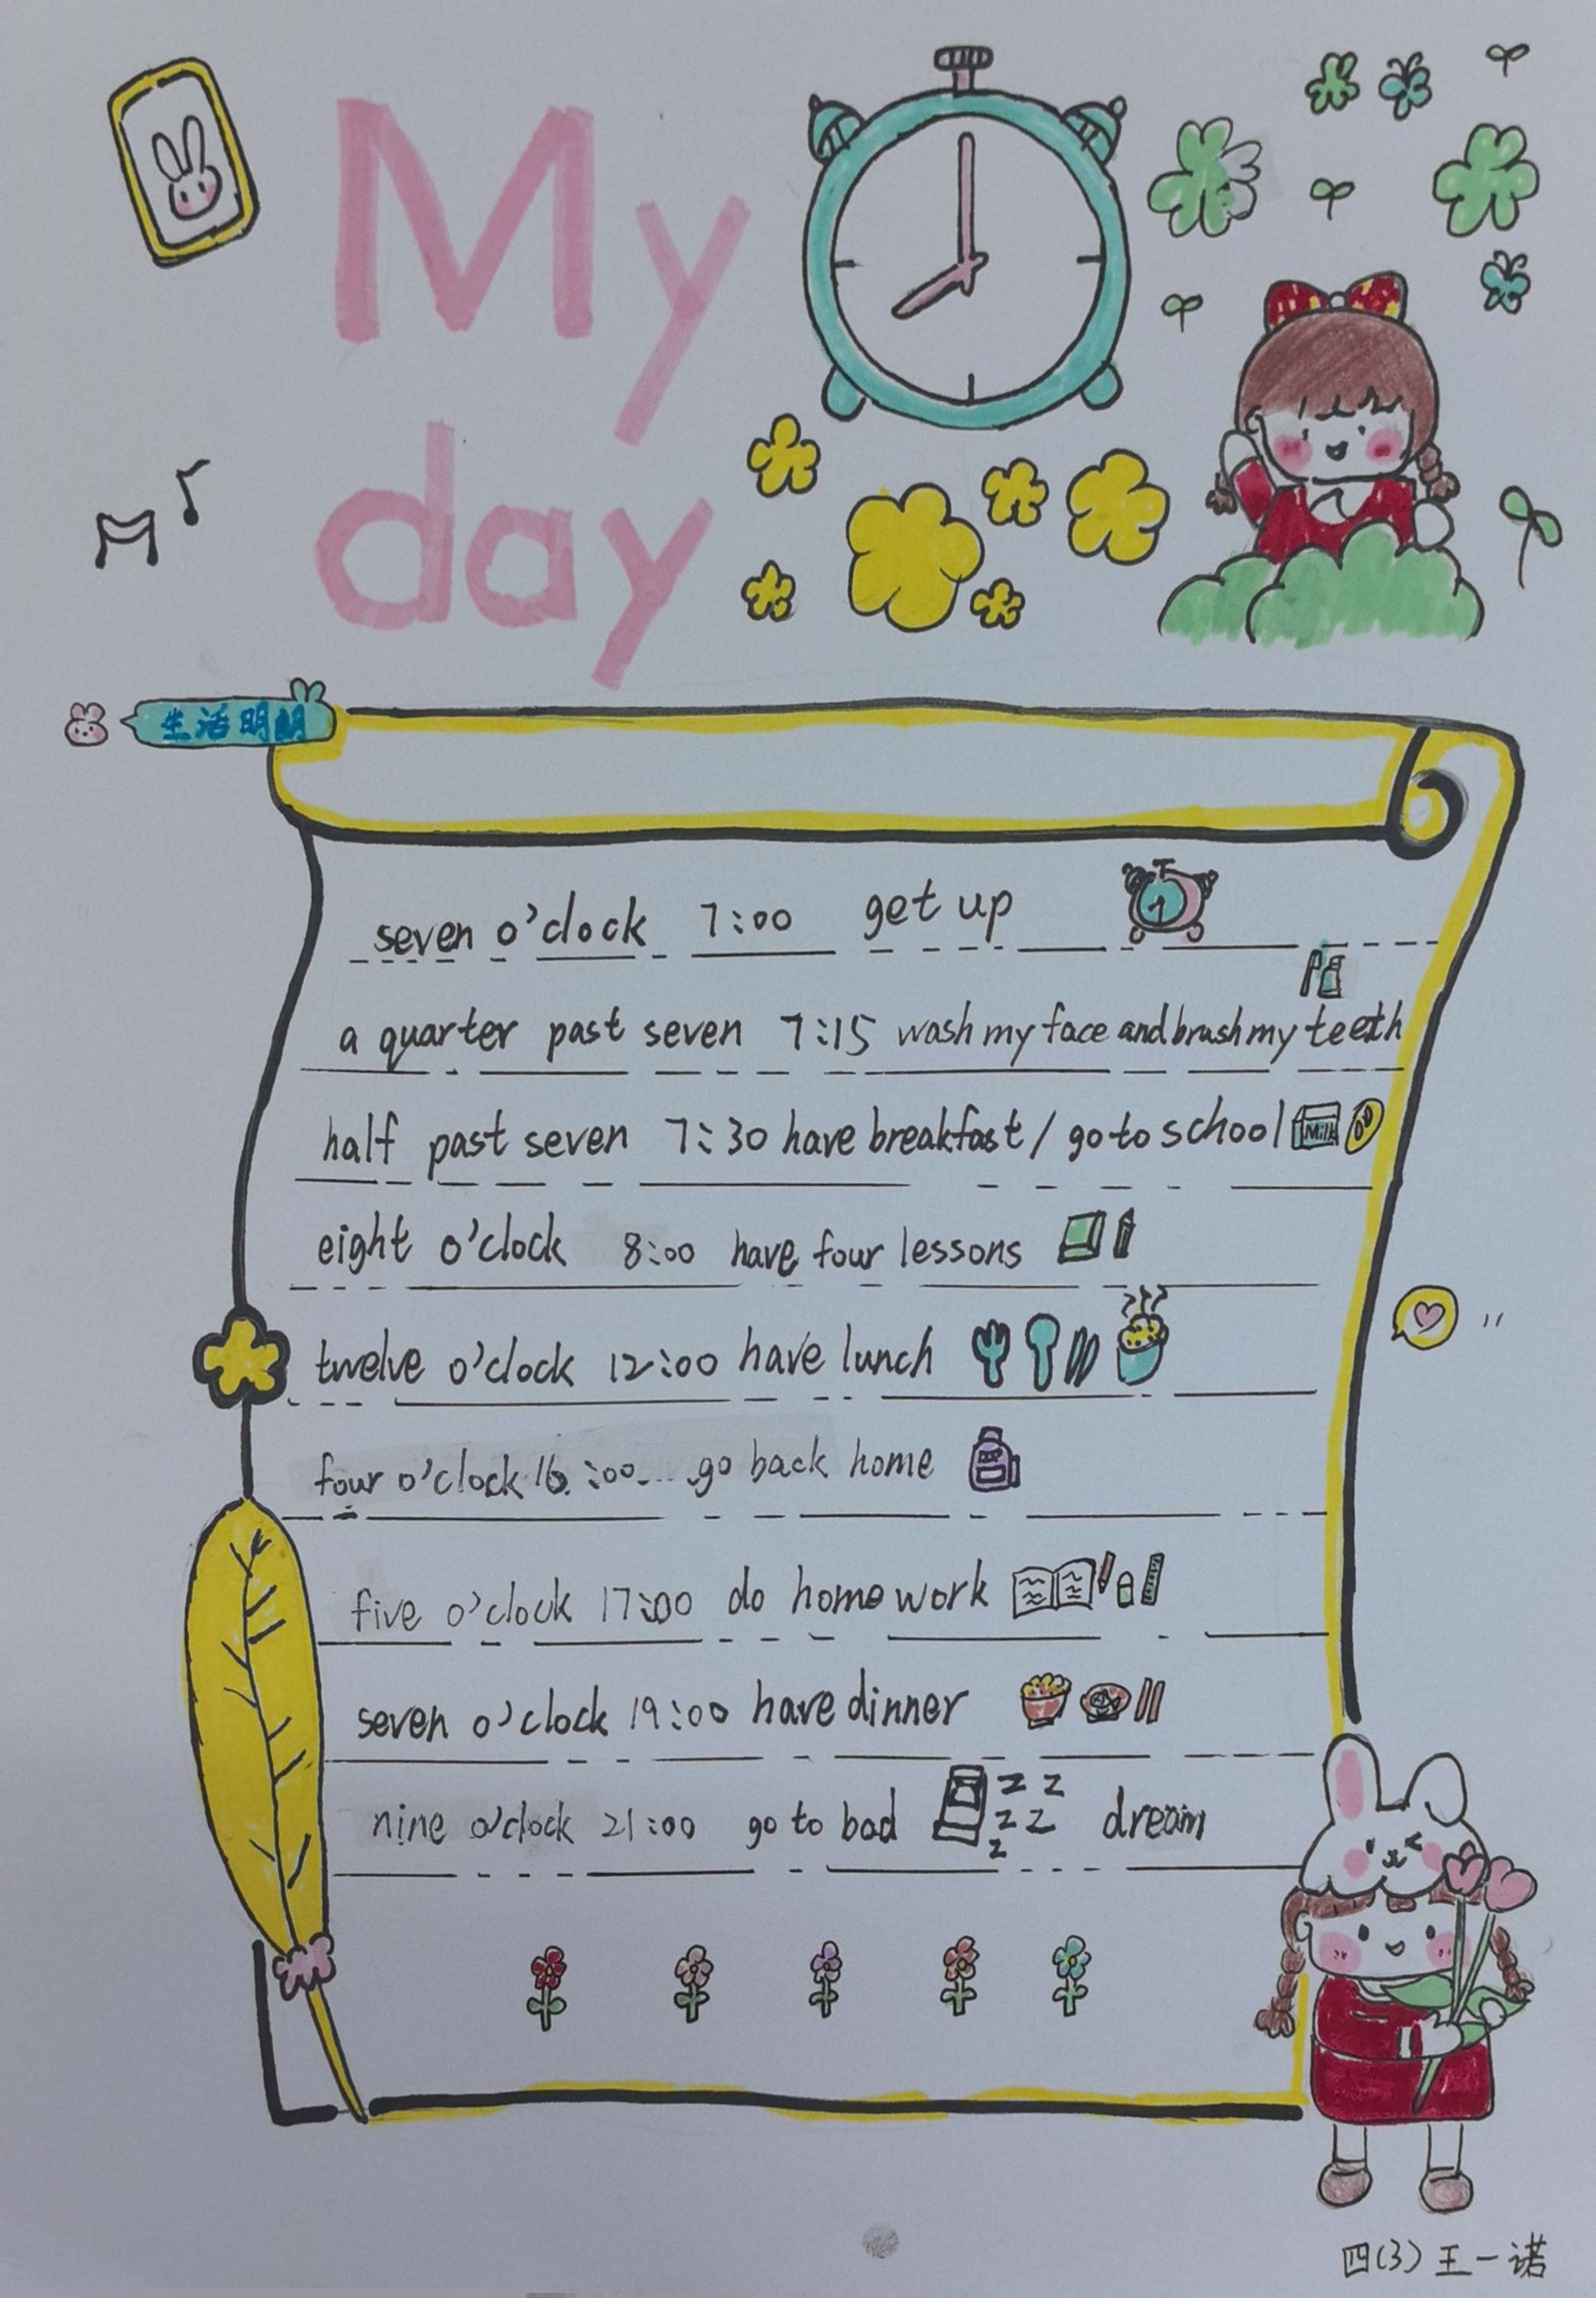 My
day
生活明朗
seven o'clock 7:00 get up
a quarter past seven 7:15 wash my face and brush my teeth
half past seven 7:30 have breakfast / go to school Milk
eight o'clock 8:00 have four lessons
twelve o'clock 12:00 have lunch
four o'clock 16:00....go back home
five o'clock 17:00 do homework
seven o'clock 19:00 have dinner
nine o'clock 21:00 go to bad zz zz z dream
四(3) 王一诺